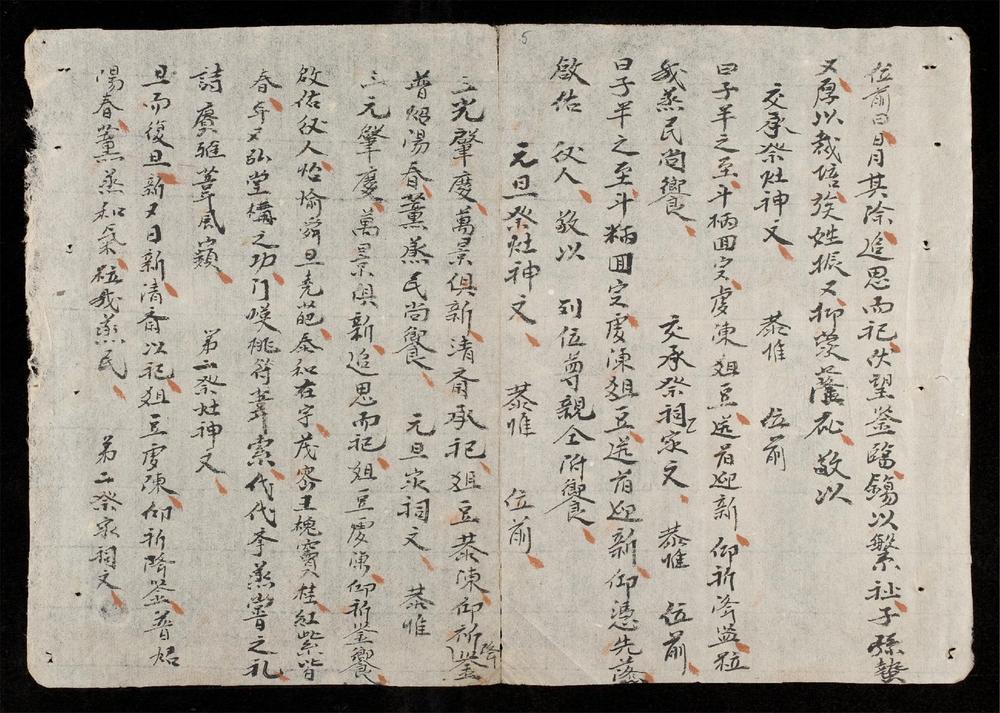 位前曰日月其除追思而祀伏望鉴臨錫以繁祉子孫蟄
又厚以栽培族姓振又仰蒙蔭庇敬以
交承祭灶神文 恭惟 位前
曰子半之至斗柄囬寅虔陳俎豆送旧迎新仰祈降鉴粒
我蒸民尚饗 交承祭祠家文 恭惟 位前
曰子半之至斗柄囬寅虔陳俎豆送旧迎新仰憑先蔭
啟佑 后人 敬以 列位尊親仝附饗
元旦祭灶神文 恭惟 位前
三光肇慶萬景俱新清香承祀俎豆恭陳仰祈降鉴
普炤陽春薰蒸民尚饗 元旦家祠文 恭惟
三元肇慶萬景俱新追思而祀俎豆虔陳仰祈鉴饗
啟佑后人怡愉舜旦堯葩泰和在宇茂容王槐竇桂紅紫皆
春年又弘堂構之功门喚桃符葦索代代李蒸嘗之礼
詩賡雅葦風類 第二祭灶神文
旦而復旦新又日新清香以祀俎豆虔陳仰祈降鉴普炤
陽春薰蒸和氣粒我蒸民 第二祭家祠文